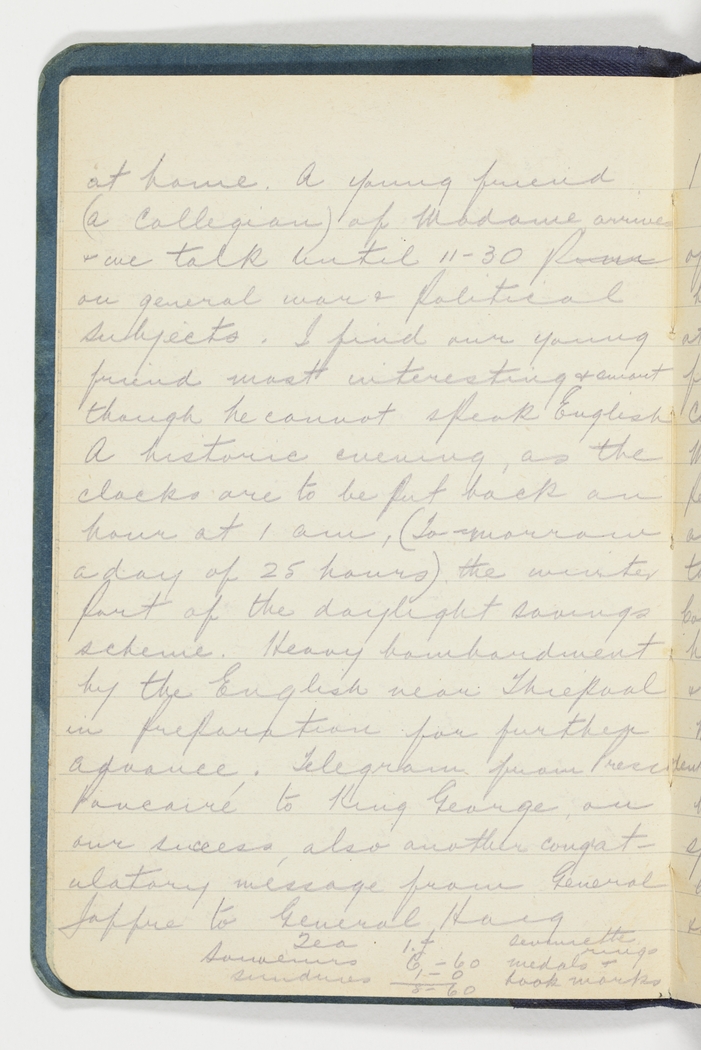 at home. A young friend
(a Collegian) of Madame arrives
& we talk until 11-30
on general war & Political
subjects. I find our young
friend most interesting & smart
though he cannot speak English
A historic evening, as the
clocks are to be put back an
hour at 1 am, (To-morrow
a day of 25 hours) the winter
Part of the daylight savings
scheme. Heavy bombardment
by the English near Thiepval
in preparation for further
advance. Telegram from President
Poncairé to King George, on
our success, also another congrat-
ulatory message from General
Joffre to General Haig
Tea 1.f
Souvenirs 6-60 rings
sundries 1-0 medals &
8-60 book marks